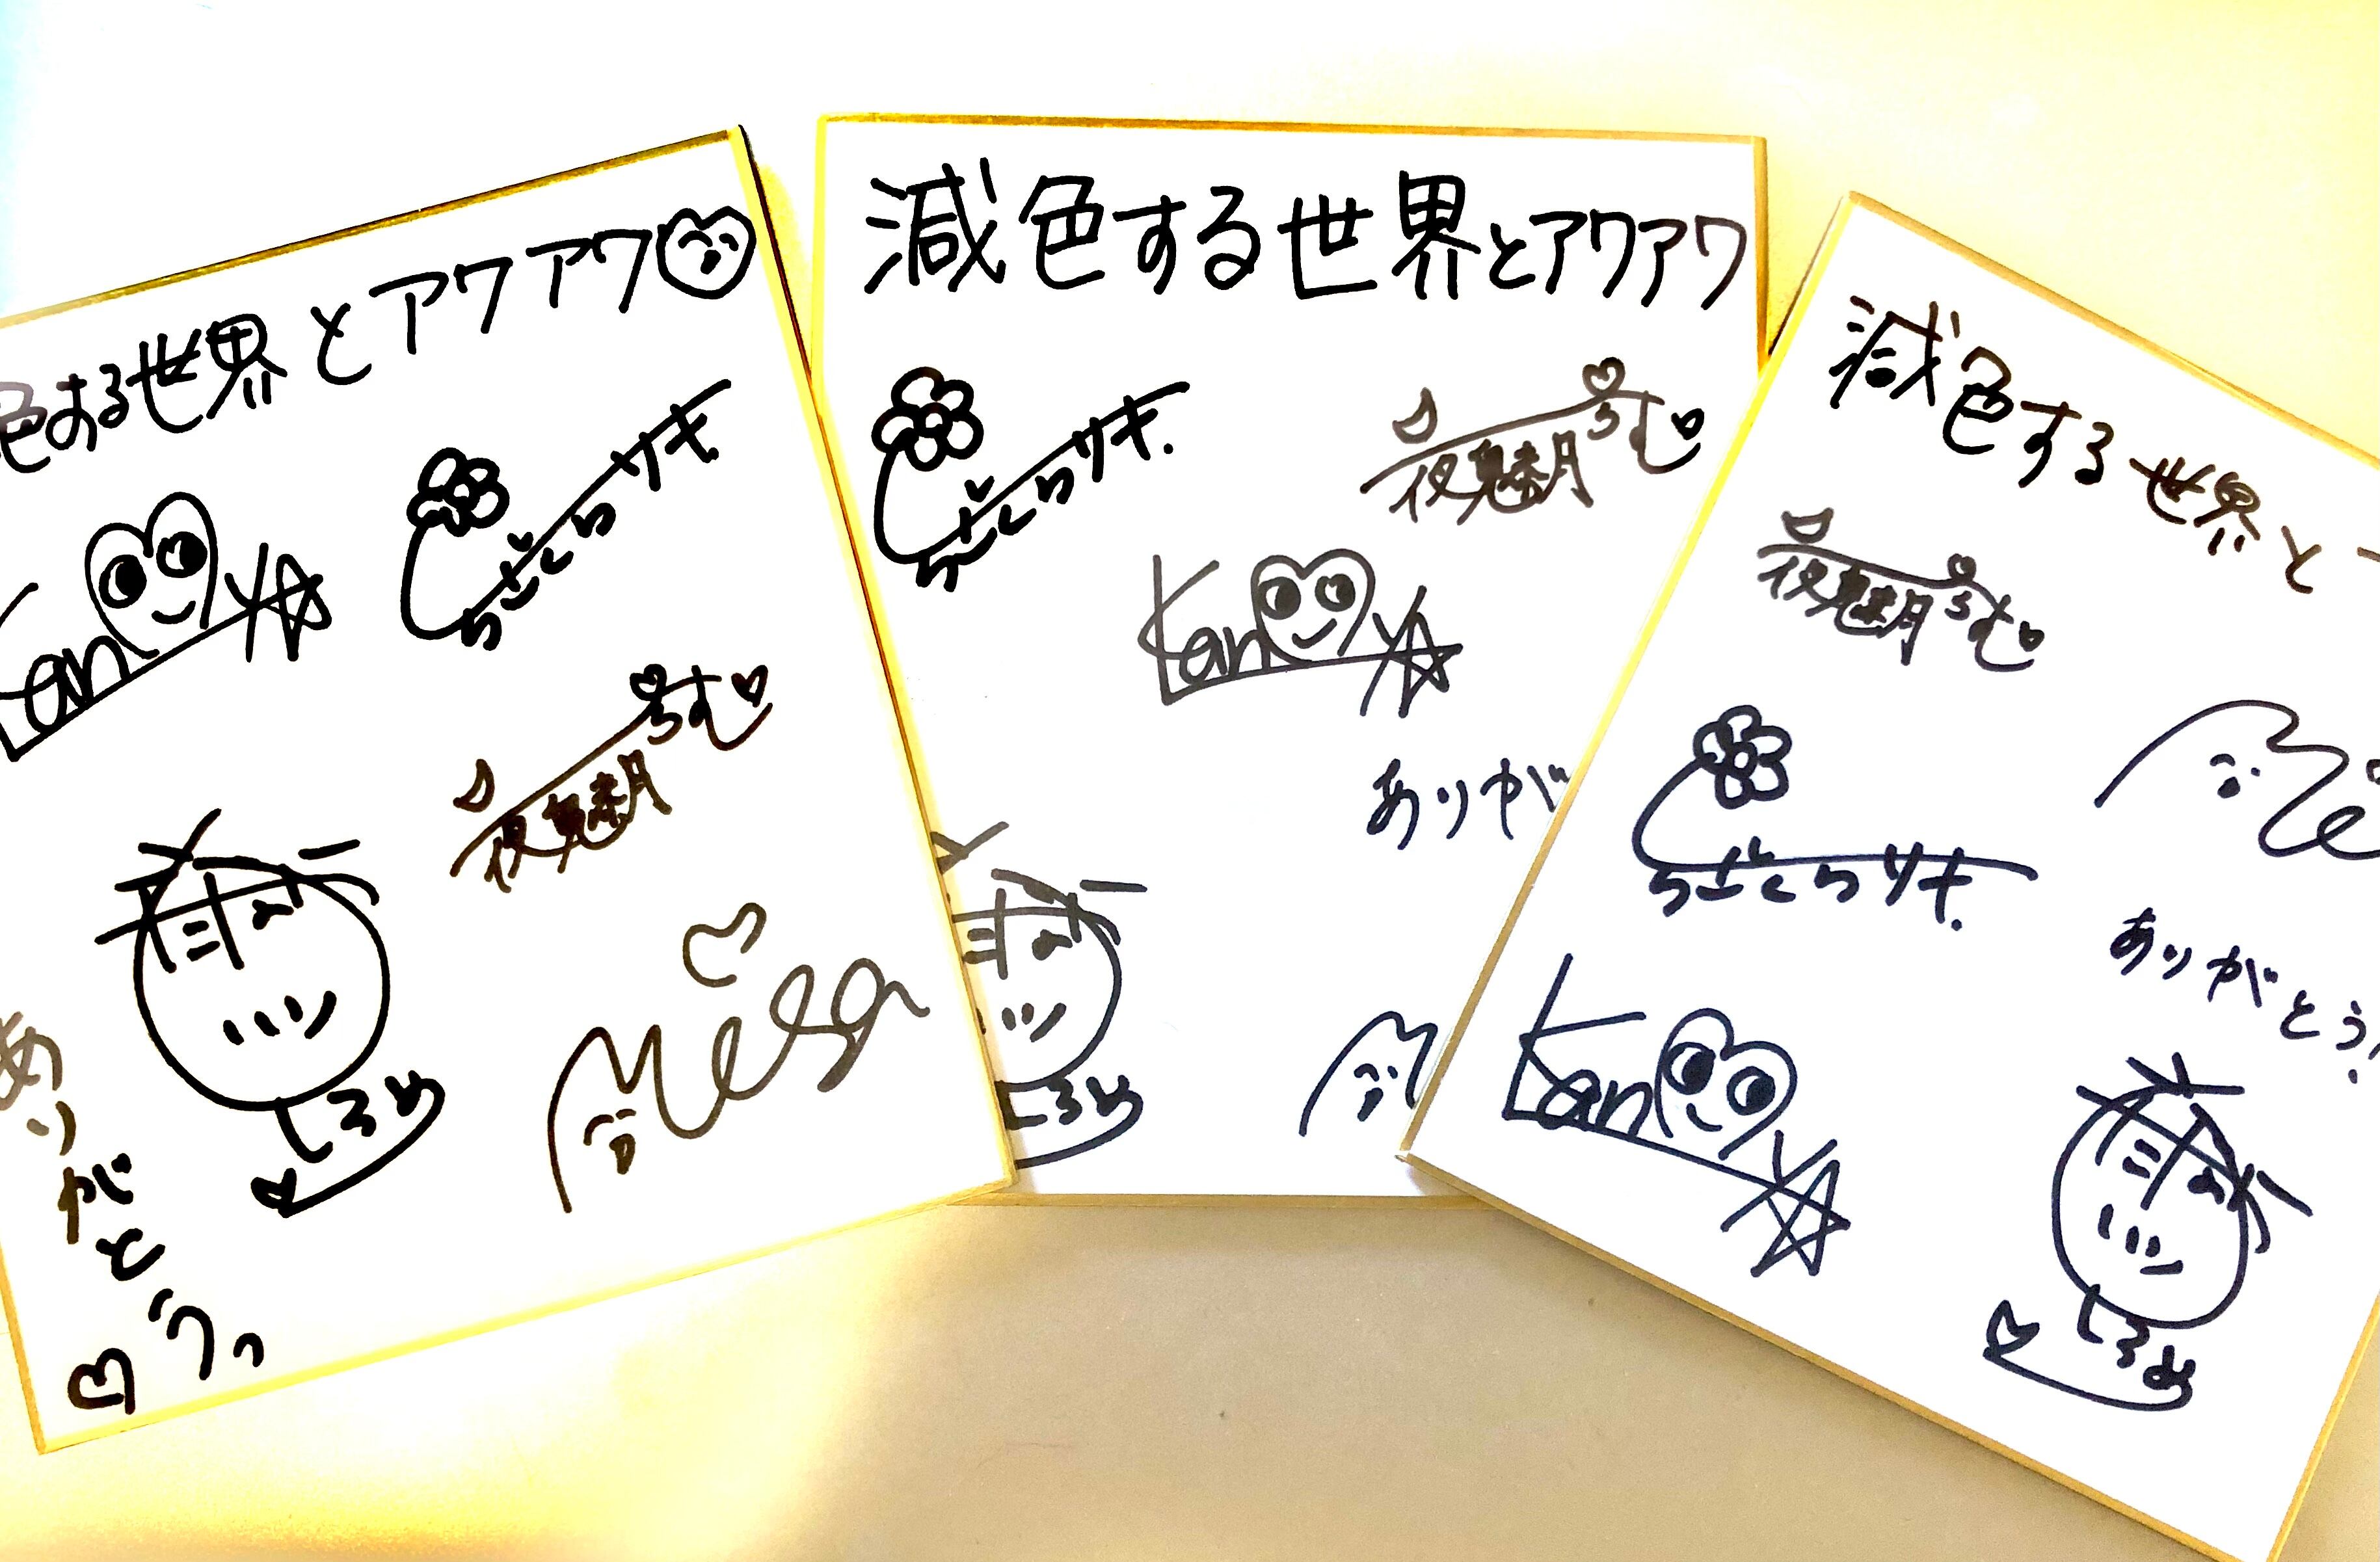 色する世界とアワアワ
Kan
ちざくらサキ
夜魅月らむ
しろめ
Mega
ありがとうっ
減色する世界とアワアワ
ちざくらサキ.
夜魅月らむ
Kan
ありが
ろめ
減色する世界と
夜魅月らむ
Me
ちざくらサキ.
ありがとう!
Kan
しろめ